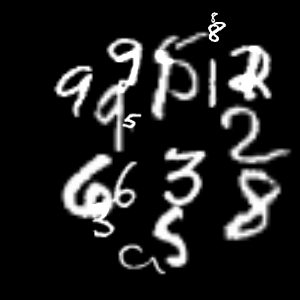 8
9 9 5 1 2
9 5 2
6 6 3 8
3 5